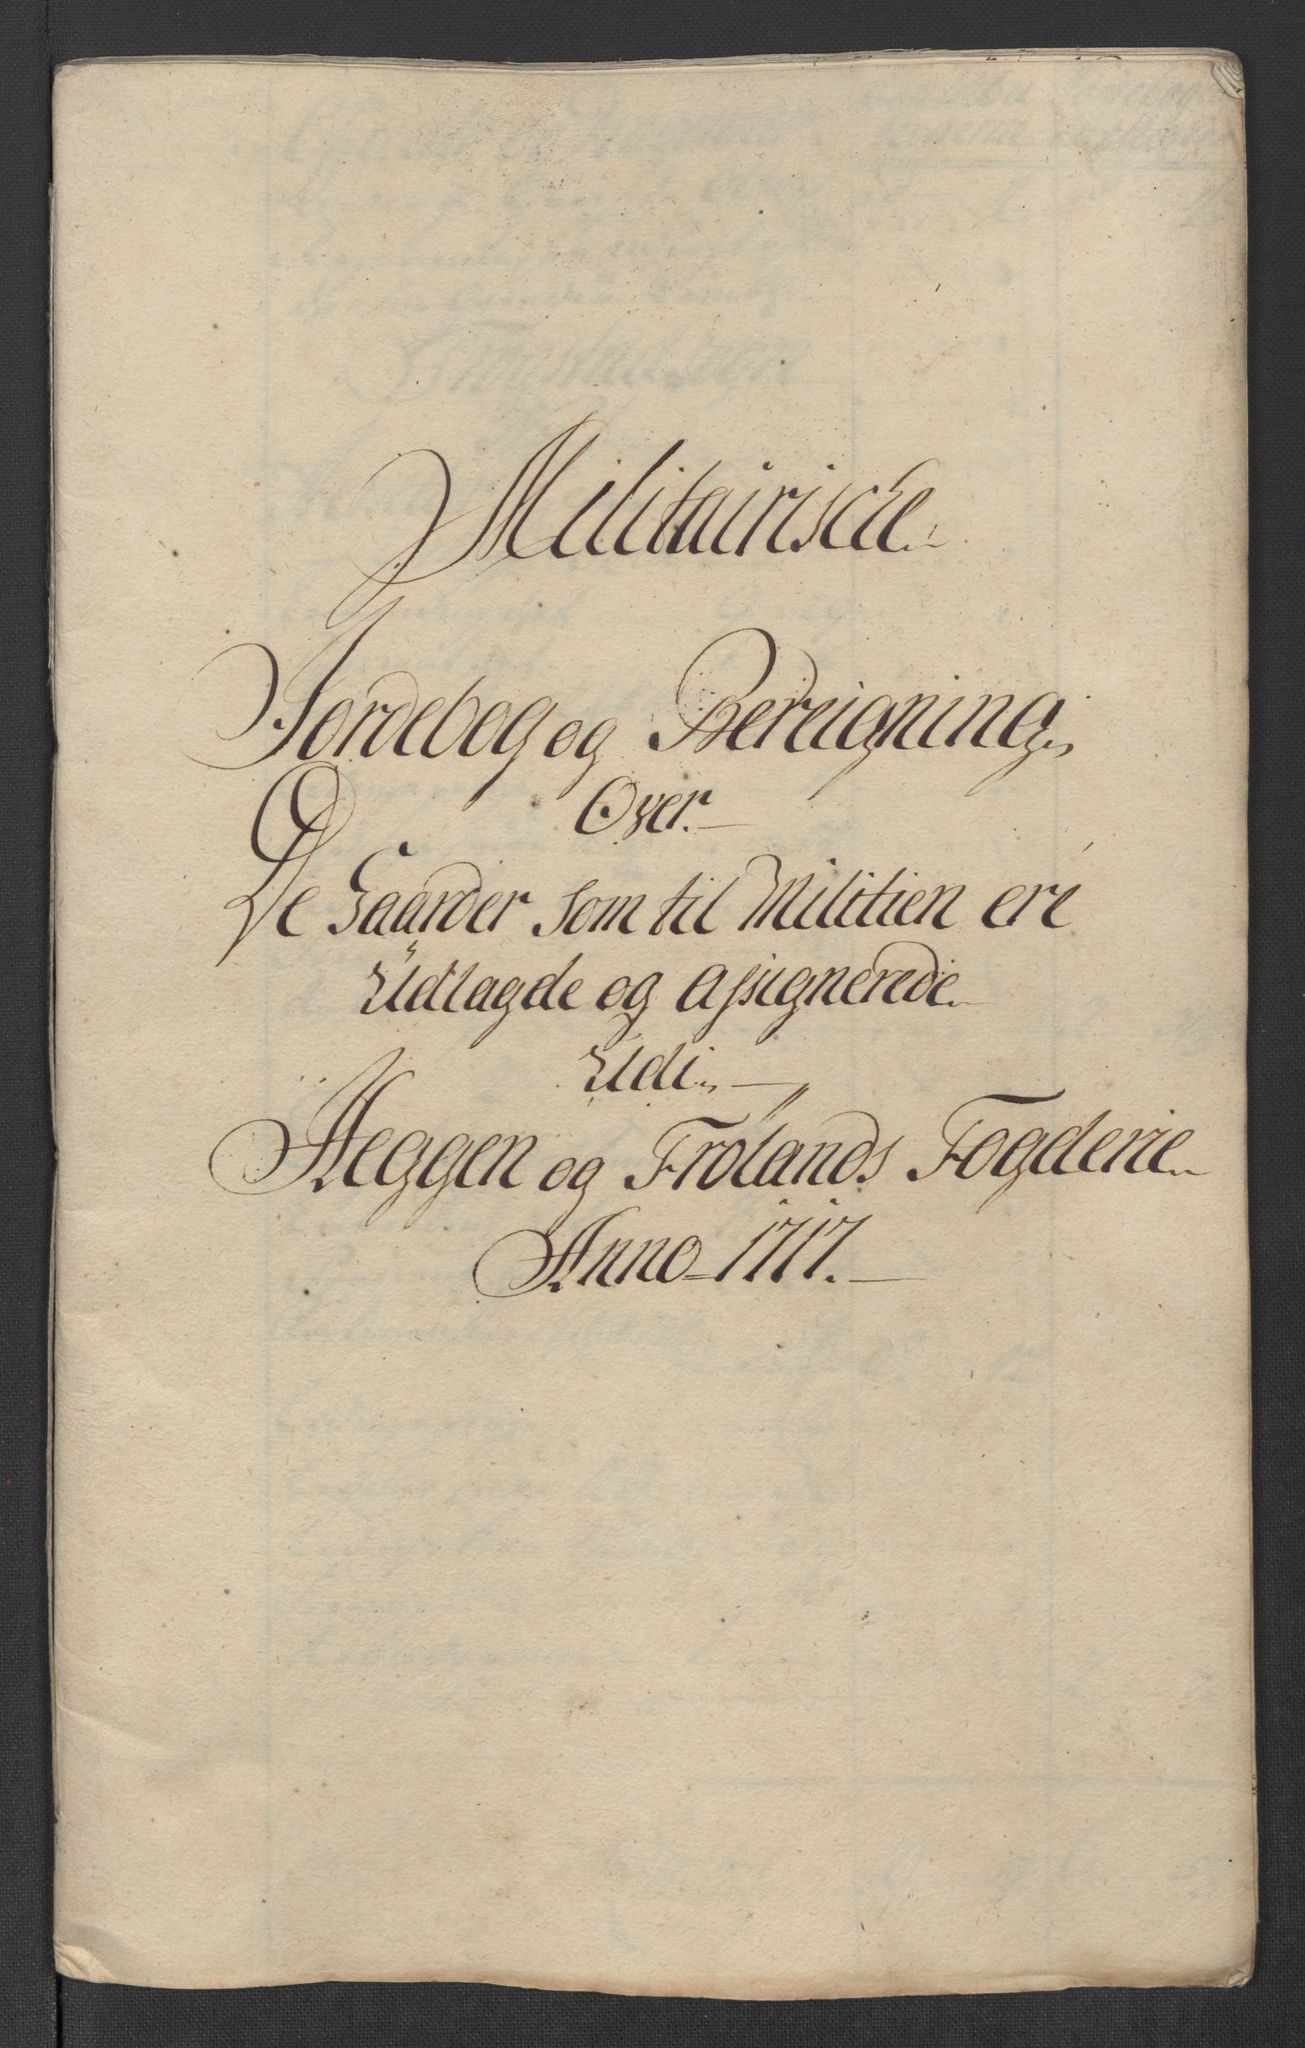 Militairische
Jordebog og Bereigning
Over
De Gaarder som til Militien ere
Udlagde og assignerede
Udi
Heggen og Frølands Fogderie
Anno 1717.